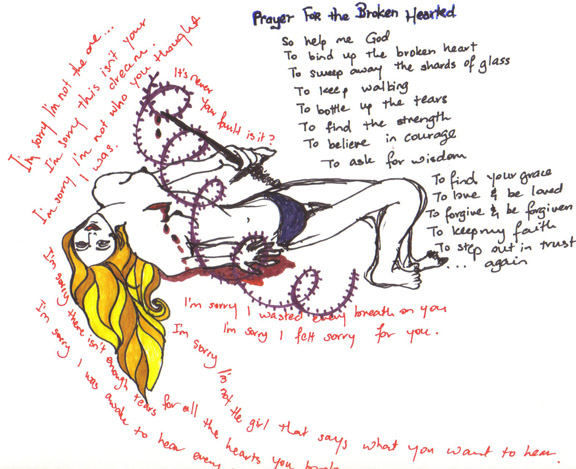 Prayer For the Broken Hearted
So help me God
To bind up the broken heart
To sweep away the shards of glass
To keep walking
To bottle up the tears
To find the strength
To believe in courage
To ask for wisdom
To find your grace
To love & be loved
To forgive & be forgiven
To keep my faith
To step out in trust
... again
I'm sorry I'm not the one...
I'm sorry this isn't your
dream
I'm sorry I'm not who you thought
I was.
It's never
your fault is it?
I'm sorry I wasted every breath on you
I'm sorry I felt sorry for you.
I'm sorry I'm not the girl that says what you want to hear.
I'm sorry there isn't enough tears for all the hearts you
I'm sorry I was awake to hear